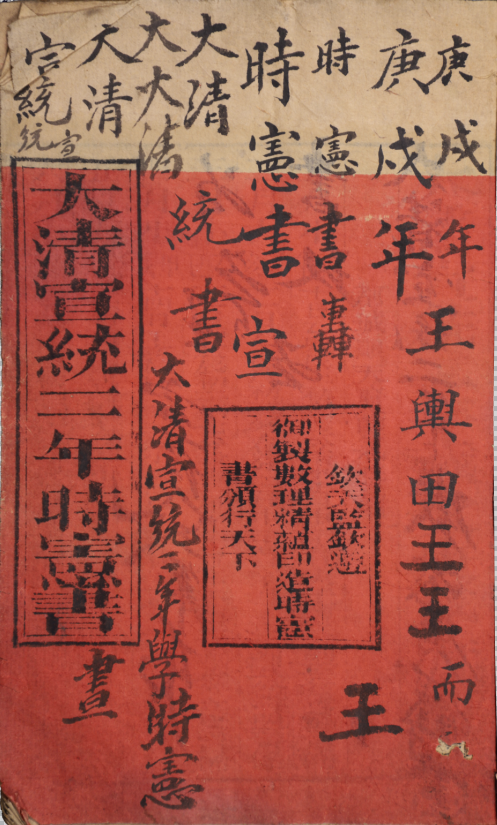 庚戌年
庚戌年王輿田王王而
時憲書
時憲書宣
王
大清統書
大大清
大清宣統二年學時憲
大清
宣統統宣
欽天監欽遵
御製數理精蘊印造時憲
書頒行天下
大清宣統二年時憲書
書